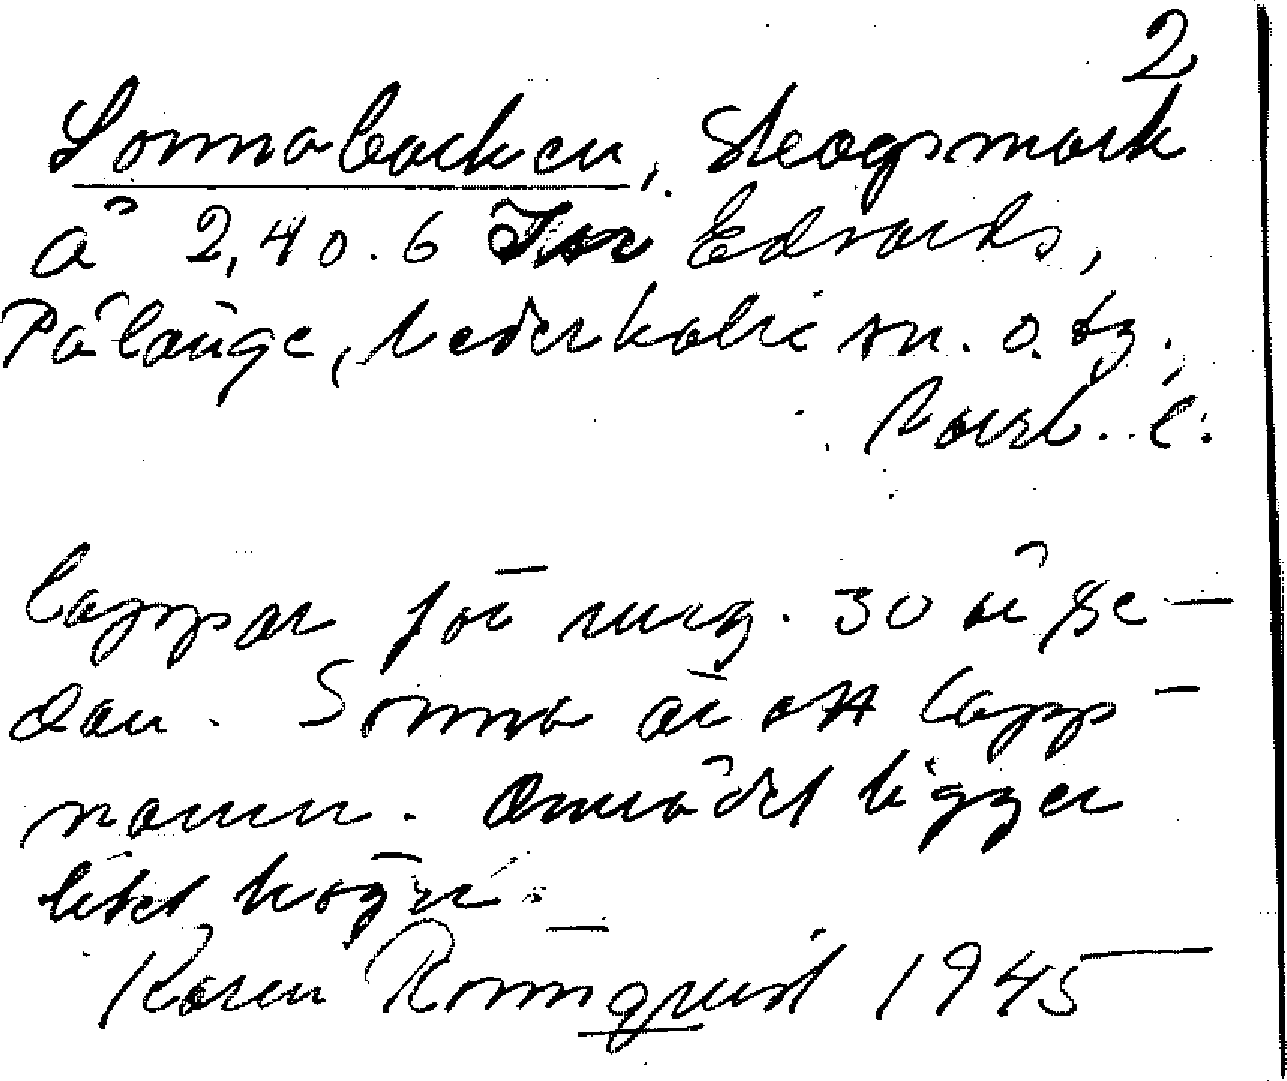 2
Sonnabacken, Skogsmark
å 2,40.6 Isr Edvards,
Pålänge, Nederkalix sn. o. tg.
Norrb. l.
lappar för ung. 30 år se-
dan. Sonna är ett lapp-
namn. Området ligger
litet högre.
Karin Rönnquist 1945